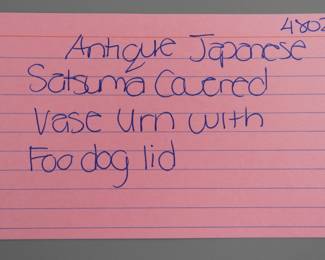 Antique Japanese
Satsuma Covered
Vase Urn with
Foo dog lid